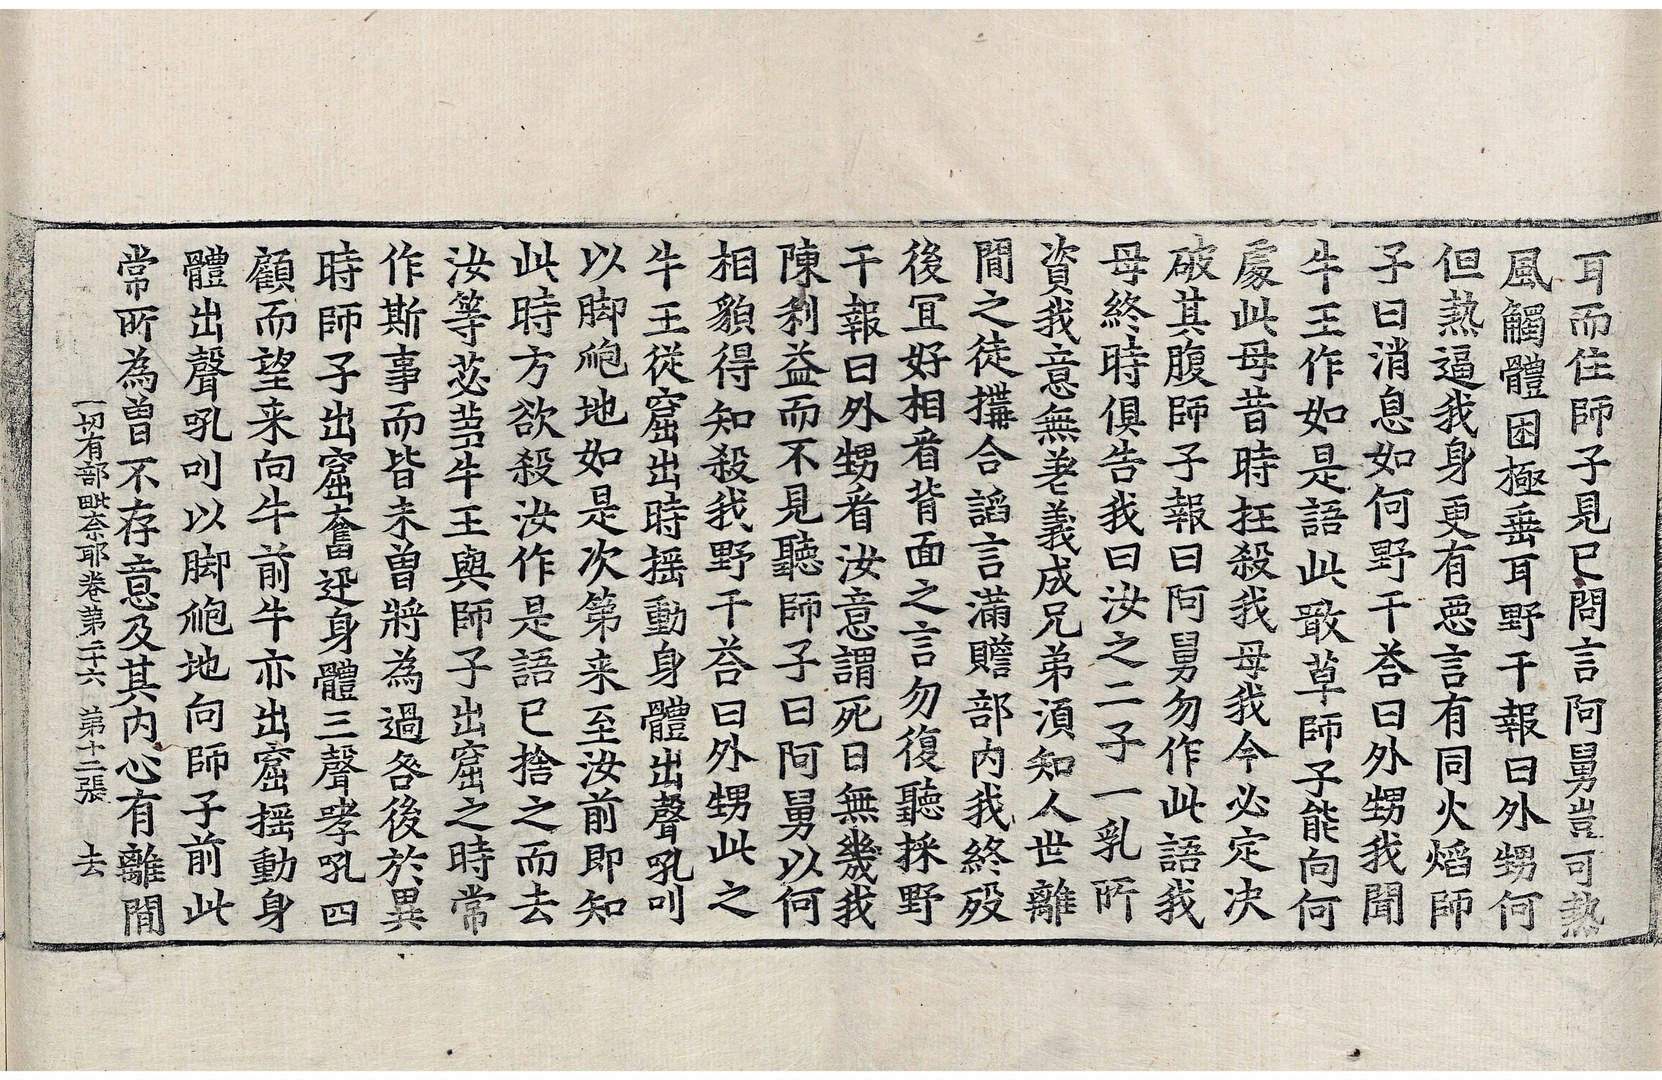 耳而住師子見已問言阿舅豈可熱
風觸體困極垂耳野干報曰外甥何
但熱逼我身更有惡言有同火焰師
子曰消息如何野干荅曰外甥我聞
牛王作如是語此噉草師子能向何
處此母昔時抂殺我母我今必定決
破其腹師子報曰阿舅勿作此語我
母終時俱告我曰汝之二子一乳所
資我意無差義成兄弟湏知人世離
間之徒搆合謟言滿贍部内我終歿
後冝好相看背面之言勿復聽採野
干報曰外甥看汝意謂死日無幾我
陳利益而不見聽師子曰阿舅以何
相貌得知殺我野干荅曰外甥此之
牛王從窟出時揺動身體出聲吼叫
以脚䠙地如是次第来至汝前即知
此時方欲殺汝作是語已捨之而去
汝等苾蒭牛王與師子出窟之時常
作斯事而皆未曽將為過咎後於異
時師子出窟奮迅身體三聲哮吼四
顧而望来向牛前牛亦出窟揺動身
體出聲吼叫以脚䠙地向師子前此
常所為曽不存意及其内心有離間
一切有部毗奈耶卷第二十六 第十二張 去